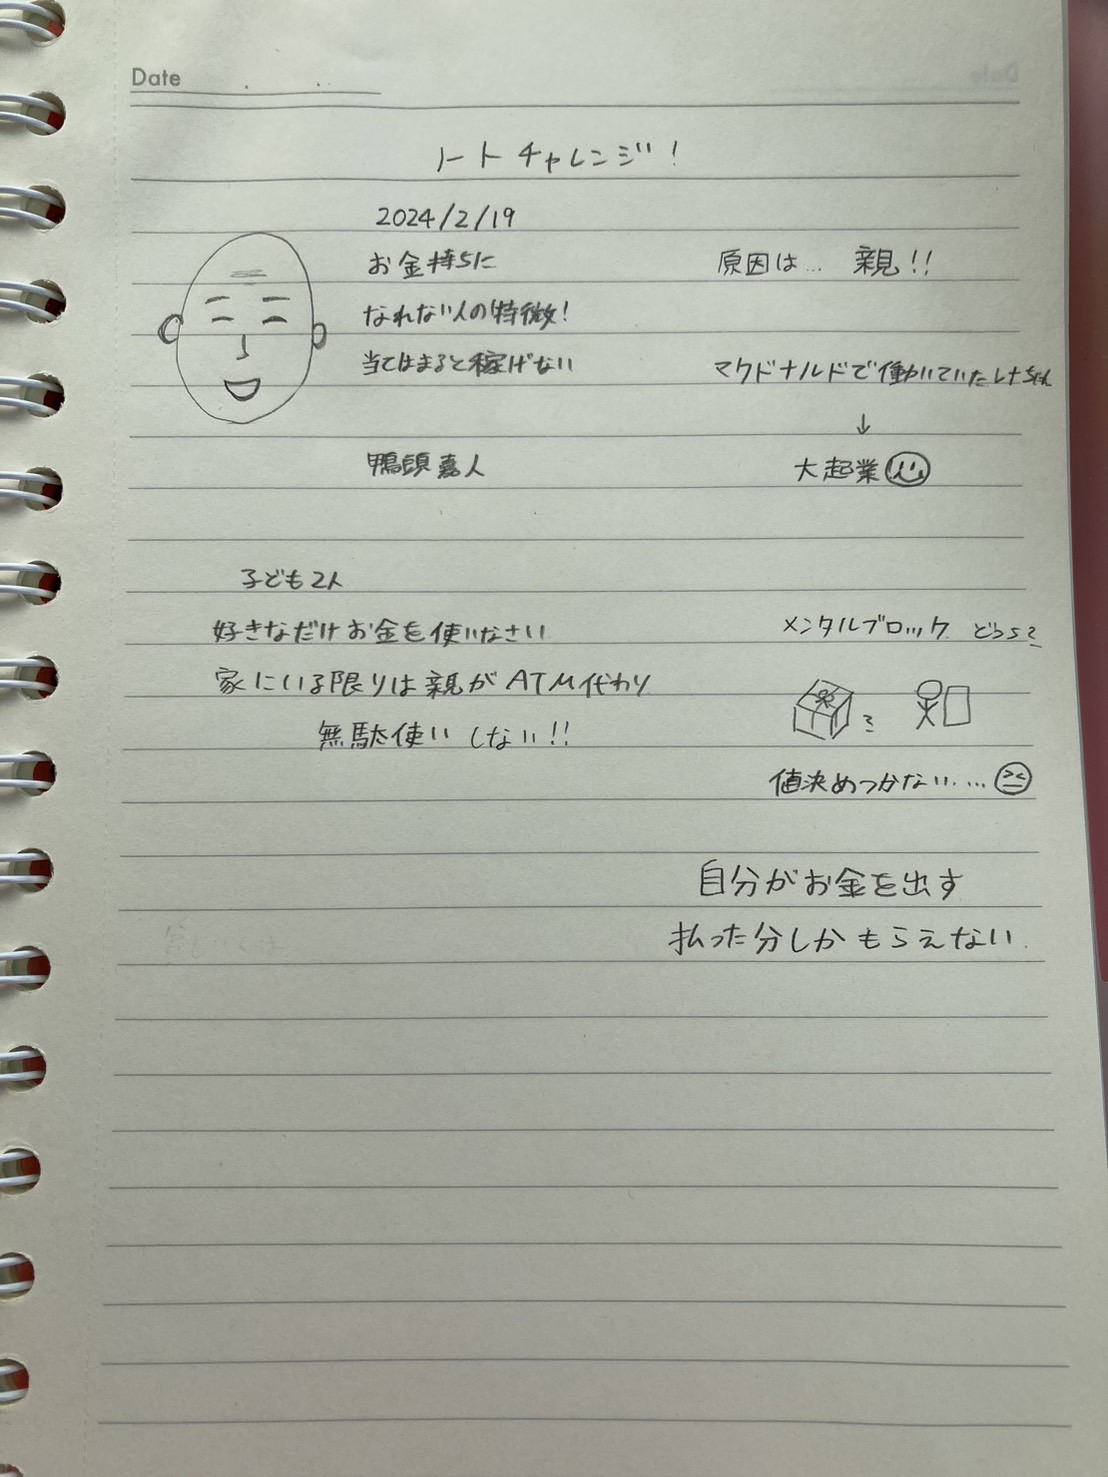 Date
ノートチャレンジ！
2024/2/19
お金持ちに
なれない人の特徴！
当てはまると稼げない
鴨頭嘉人
原因は… 親！！
マクドナルドで働いていた
↓
大起業
子ども2人
好きなだけお金を使いなさい
家にいる限りは親がATM代わり
無駄使いしない！！
メンタルブロック どっち？
?
値決めつかない……
自分がお金を出す
払った分しかもらえない